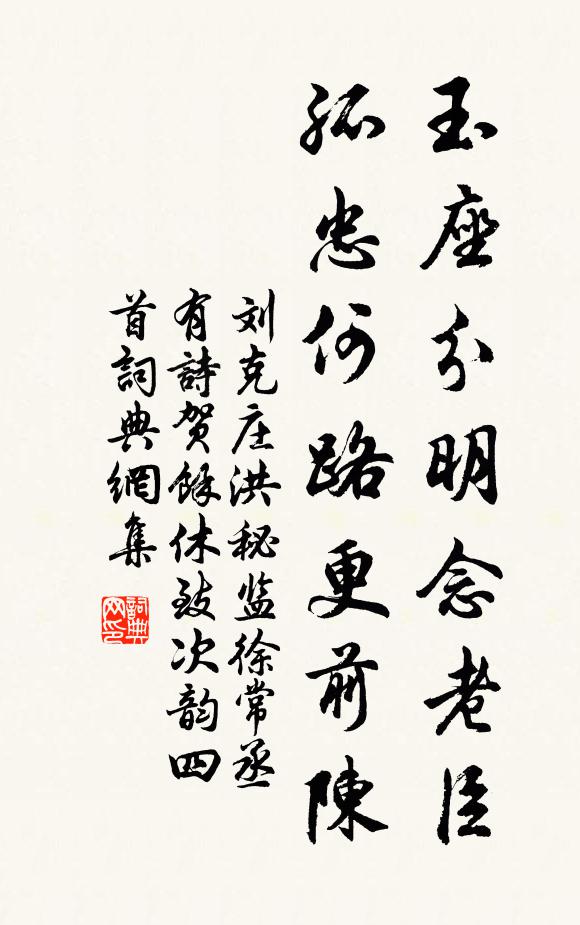 玉座分明念老臣
孤忠何路更前陳
刘克庄洪秘监徐常丞
有詩贺餘休致次韵四
首詞典網集
詞典网印